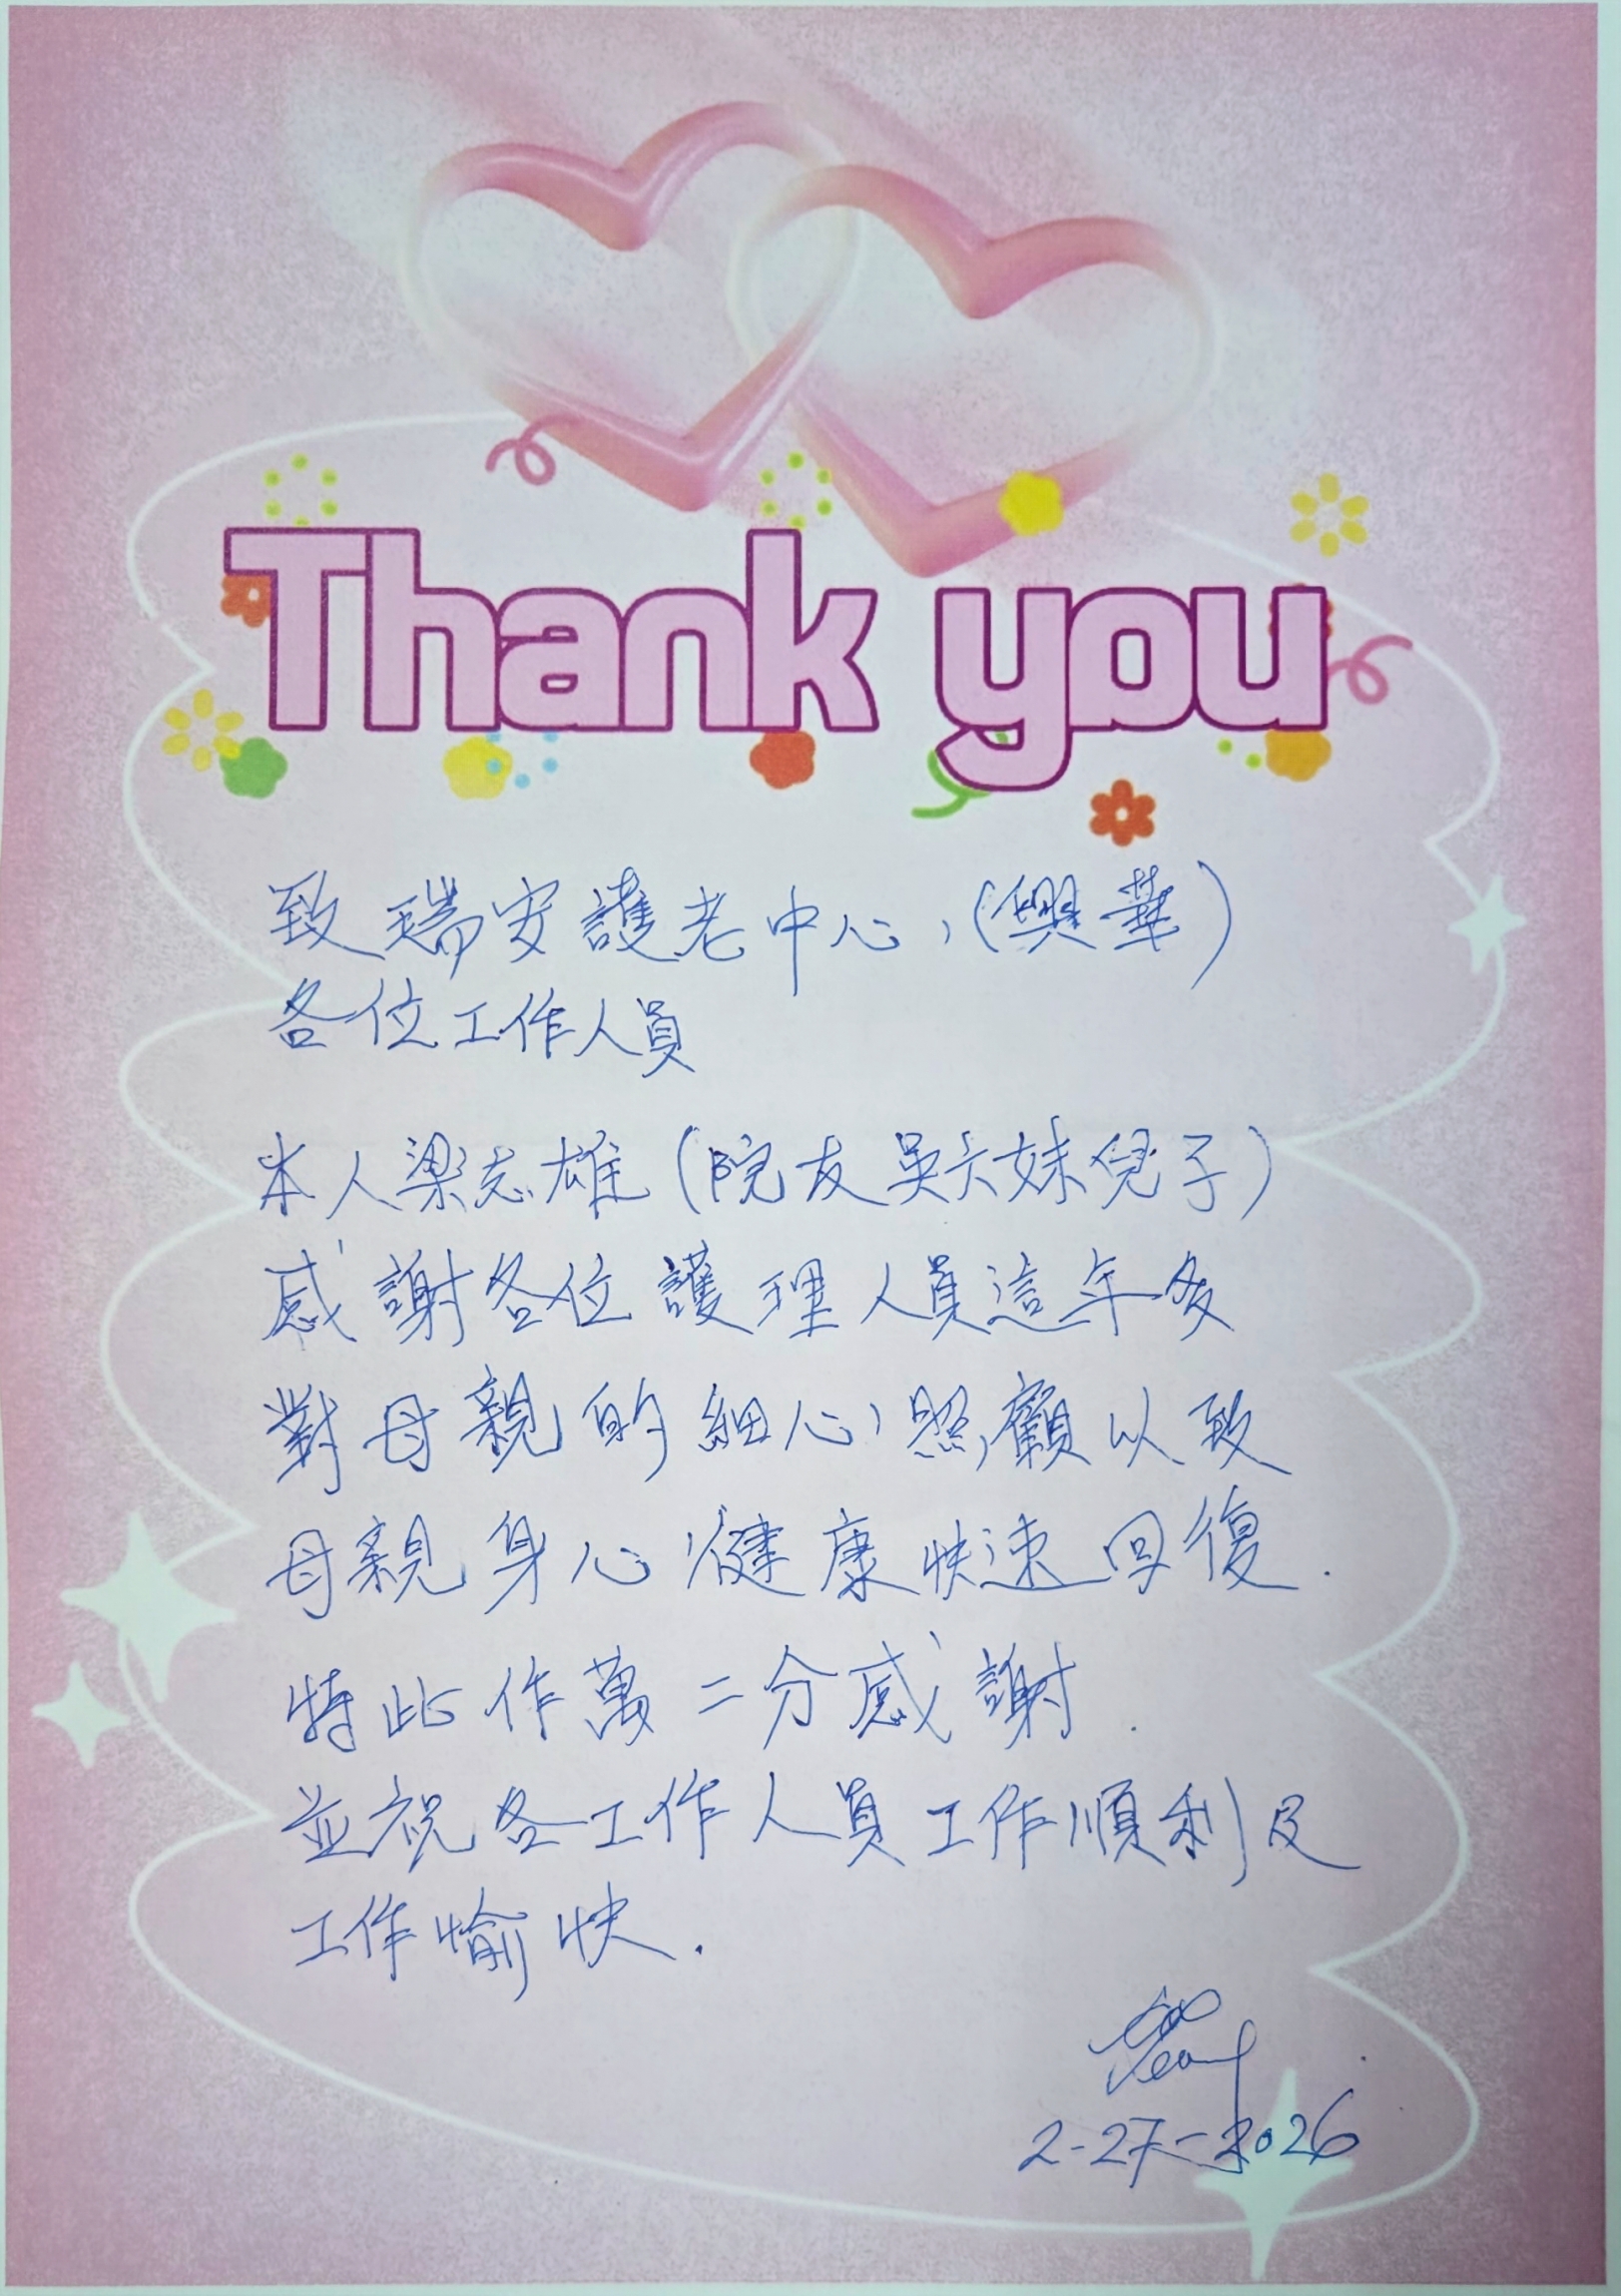 Thank you
致瑞安護老中心,(興華)
各位工作人員
本人梁志雄(院友吳六妹兒子)
感謝各位護理人員這年多
對母親的細心照顧以致
母親身心健康快速回復.
特此作萬二分感謝.
並祝各工作人員工作順利及
工作愉快.
2-27-2026